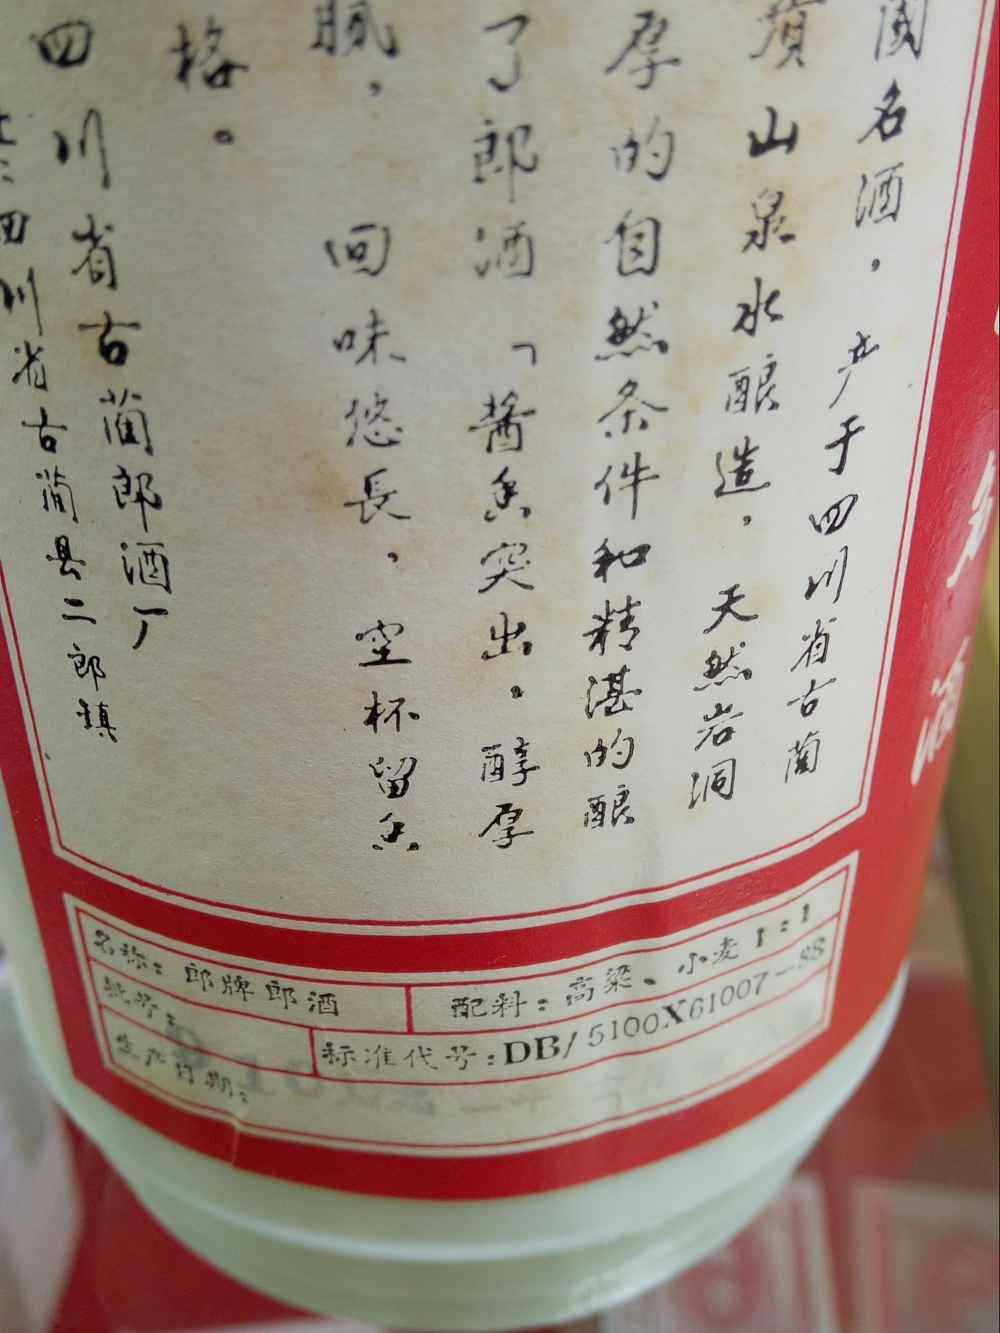 國名酒，产于四川省古蔺
山泉水酿造，天然岩洞
厚的自然条件和精湛的酿
了郎酒「酱香突出，醇厚
腻，回味悠長，空杯留香
格。
四川省古蔺郎酒厂
四川省古蔺县二郎镇
名称：郎牌郎酒
配料：高粱、小麦1：1
批号：
标准代号：DB/5100X61007-88
生产日期：